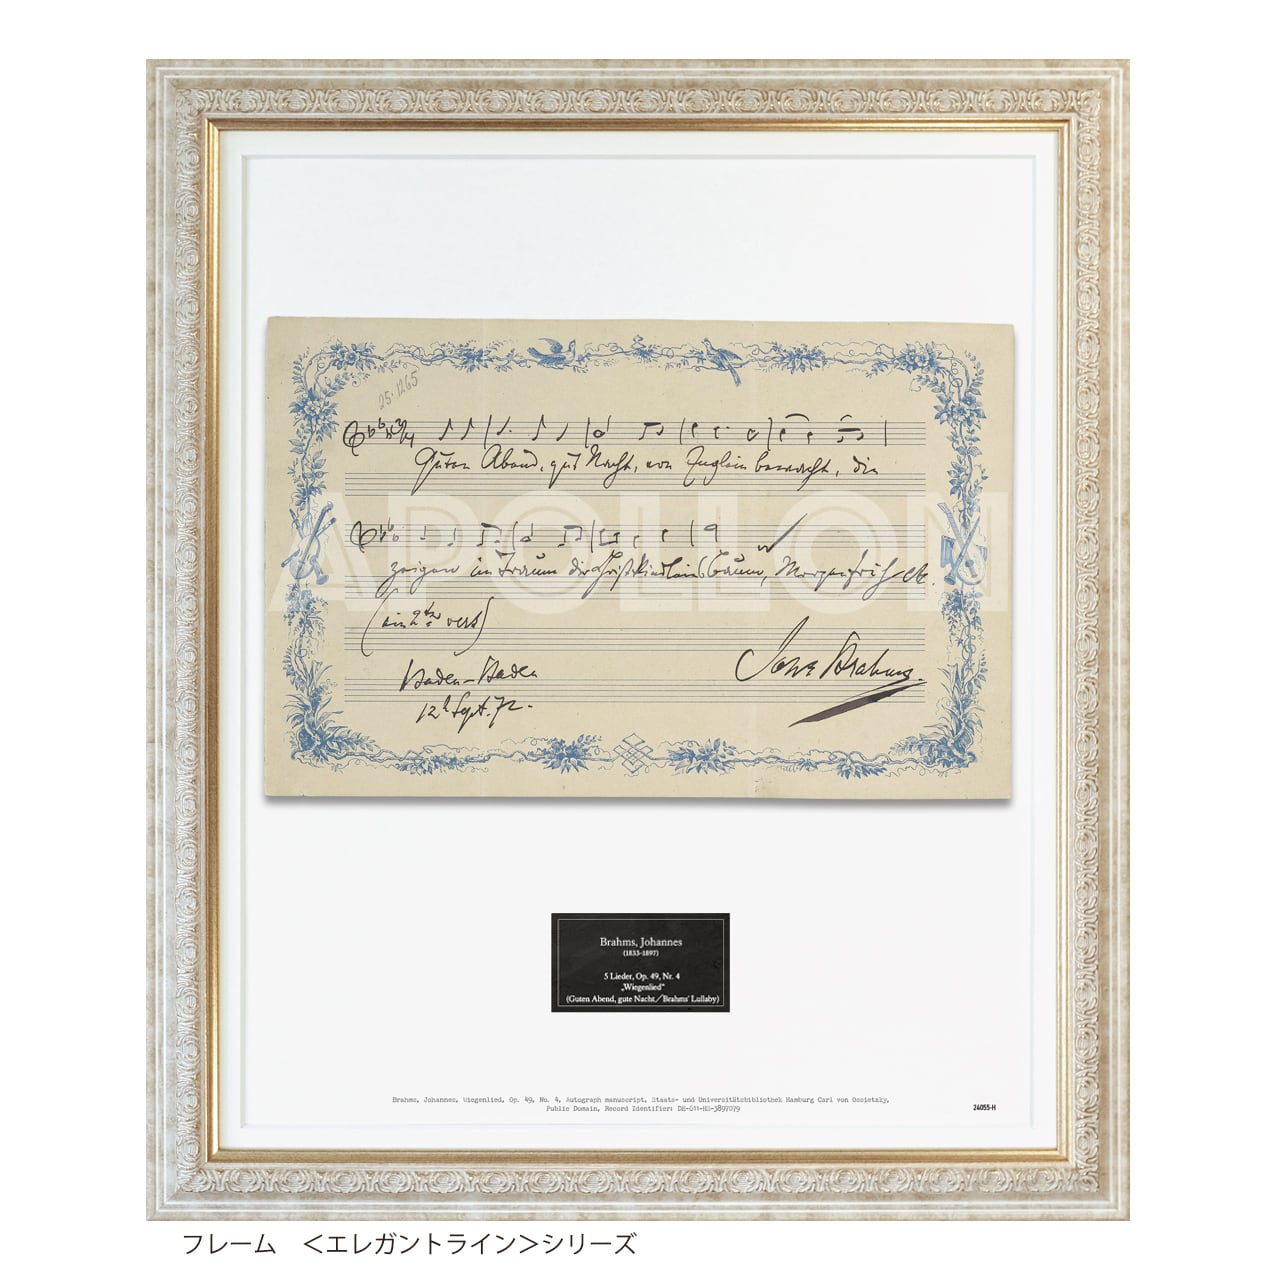 25.1265
Guten Abend, gut Nacht, von Englein bewacht, die
APOLLON
zeigen im Traum dir Christkindleins Baum, Morgenfrüh etc.
vers)
Baden-Baden
12t Sept. 72.
Johs Brahms.
Brahms, Johannes
(1833-1897)
5 Lieder, Op. 49, Nr. 4
„Wiegenlied“
(Guten Abend, gute Nacht／Brahms' Lullaby)
Brahms, Johannes, Wiegenlied, Op. 49, No. 4, Autograph manuscript, Staats- und Universitätsbibliothek Hamburg Carl von Ossietzky,
Public Domain, Record Identifier: DE-611-HS-3897079
24055-H
フレーム　＜エレガントライン＞シリーズ